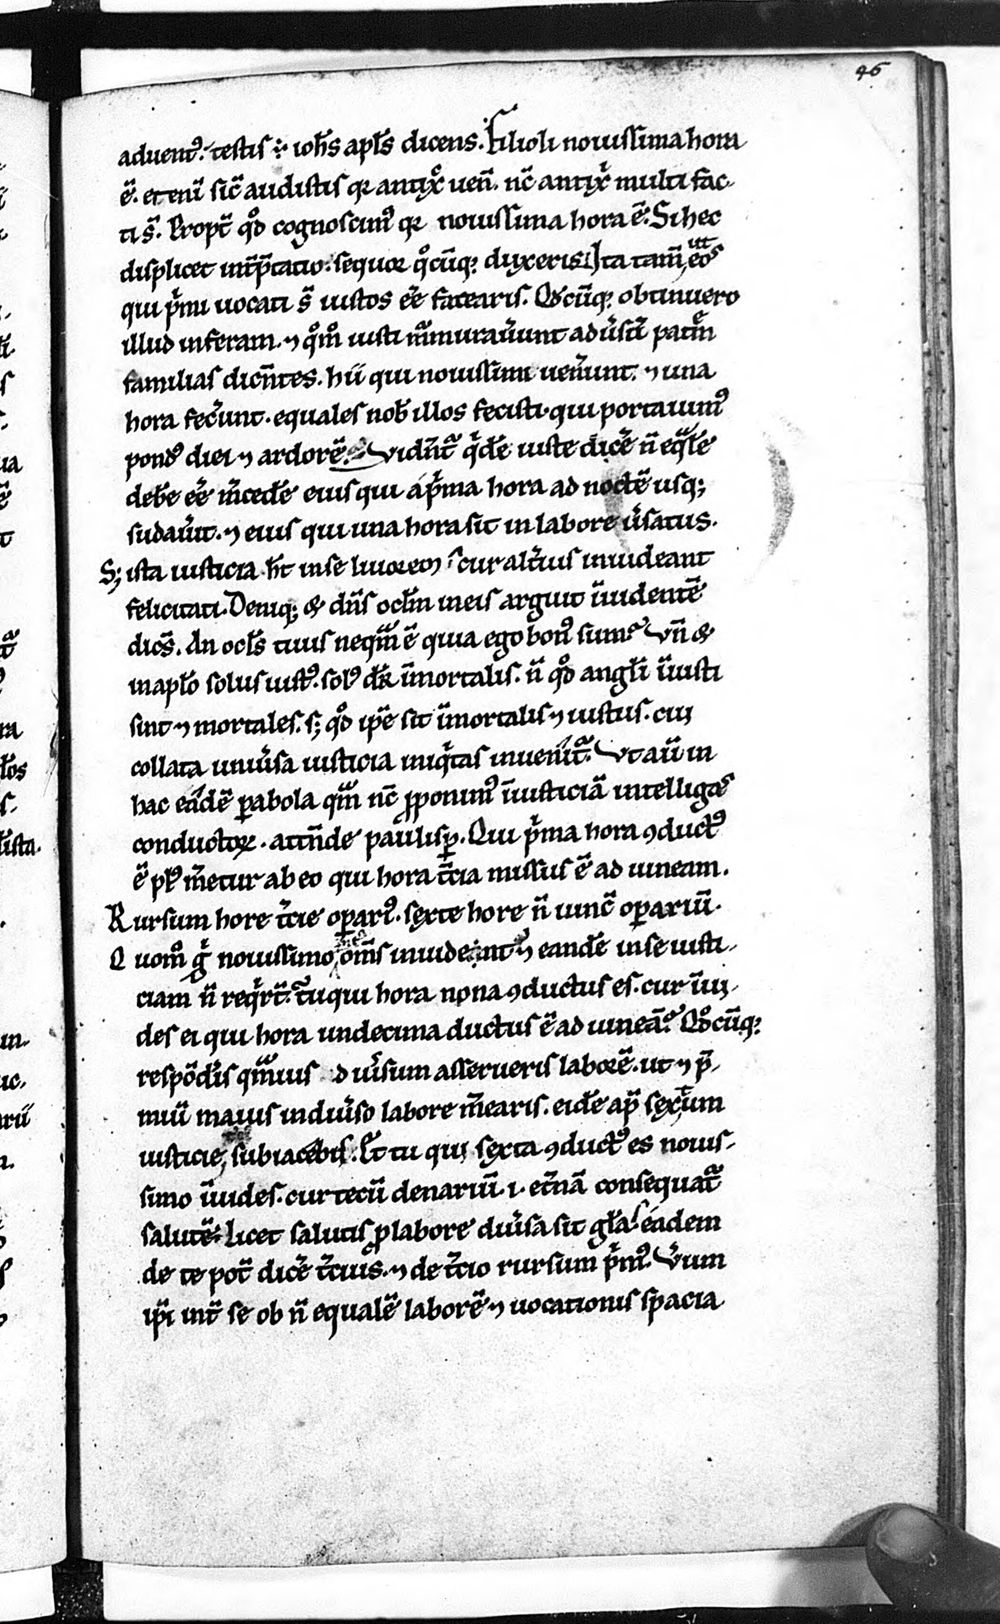 46
aduent᷒. testis ÷ ioh̅s apl̅s dicens. Filioli nouissima hora
ē. et eni̅ sic̅ audistis qr antix᷒ uen̅. nc̅ antix̅ multi fac-
ti s̅. Propt̅ qd̊ cognoscim᷒ qr nouissima hora ē. Si hec
displicet int̅p̅tatio. sequor qo̊cu̅q; duxeris. Ita tam̅ ut eos
qui p̅mi uocati s̅ iustos ee̅ fatearis. Qd̊cu̅q; obtinuero
illud inferam. ⁊ qo̊m̊ iusti m̅murau̅unt adu̅su̅ patre̅m
familias dice̅ntes. hii qui nouissimi uen̅unt. ⁊ una
hora fec̅unt. equales nob̅ illos fecisti. qui portauim᷒
pond᷒ diei ⁊ ardore̅. Vident̅ q̅de̅ iuste dice̅ n̅ eq̅le̅
debe̅ ee̅ m̅cede̅ eius qui a p̅ma hora ad nocte̅ usq;
sudau̅it. ⁊ eius qui una hora sit in labore u̅satus.
S; ista iusticia h̅t in se liuorem. cur alt̅ius inuideant
felicitati. Deniq; & dn̅s ocl̅m in eis arguit i̅uidente̅
dice̅s. An ocl̅s tuus neq̅m ē quia ego bon᷒ sum? Vn̅ &
in apl̅o solus iust᷒. sol᷒ dr̅ i̅mortalis. n̅ qd̊ angl̅i i̅iusti
sint ⁊ mortales. s; qd̊ ip̅e sit i̅mortalis ⁊ iustus. cui
collata uniu̅sa iusticia iniq̅tas inuenit̅. Vt au̅ in
hac eade̅ parabola qm̅ nc̅ proponim᷒ i̅iusticia̅ intelligas
conductor. atte̅nde paulisp. Qui p̅ma hora ɔduct᷒
ē pl᷒ m̅etur ab eo qui hora t̅cia missus ē ad uineam.
Rursum hore t̅cie operari᷒. sexte hore n̅ iunc̅ operariu̅.
Quom̊ g̅ nouissimo om̅s inuideant ⁊ eande̅ in se iusti-
ciam n̅ req̅rt̅. tu qui hora nona ɔductus es. cur i̅ui-
des ei qui hora undecima ductus ē ad uinea̅? Qd̊cu̅q;
respo̅d̅is qm̅uis d̅ iu̅sum asserueris labore̅. ut ⁊ p̅-
miu̅ maius in diu̅so labore m̅earis. eide̅ ap̅ sextum
iusticie subiacebis. Et tu qui sexta ɔduct᷒ es nouis-
simo i̅uides. cur tecu̅ denariu̅ .i. et̅na̅ consequat̅
salute̅. licet salutis pro labore diu̅sa sit gl̅a. eadem
de te pot̅ dice̅ t̅cius. ⁊ de t̅cio rursum p̅m᷒. Veru̅m
ip̅i int̅ se ob n̅ equale̅ labore̅ ⁊ uocationis spacia